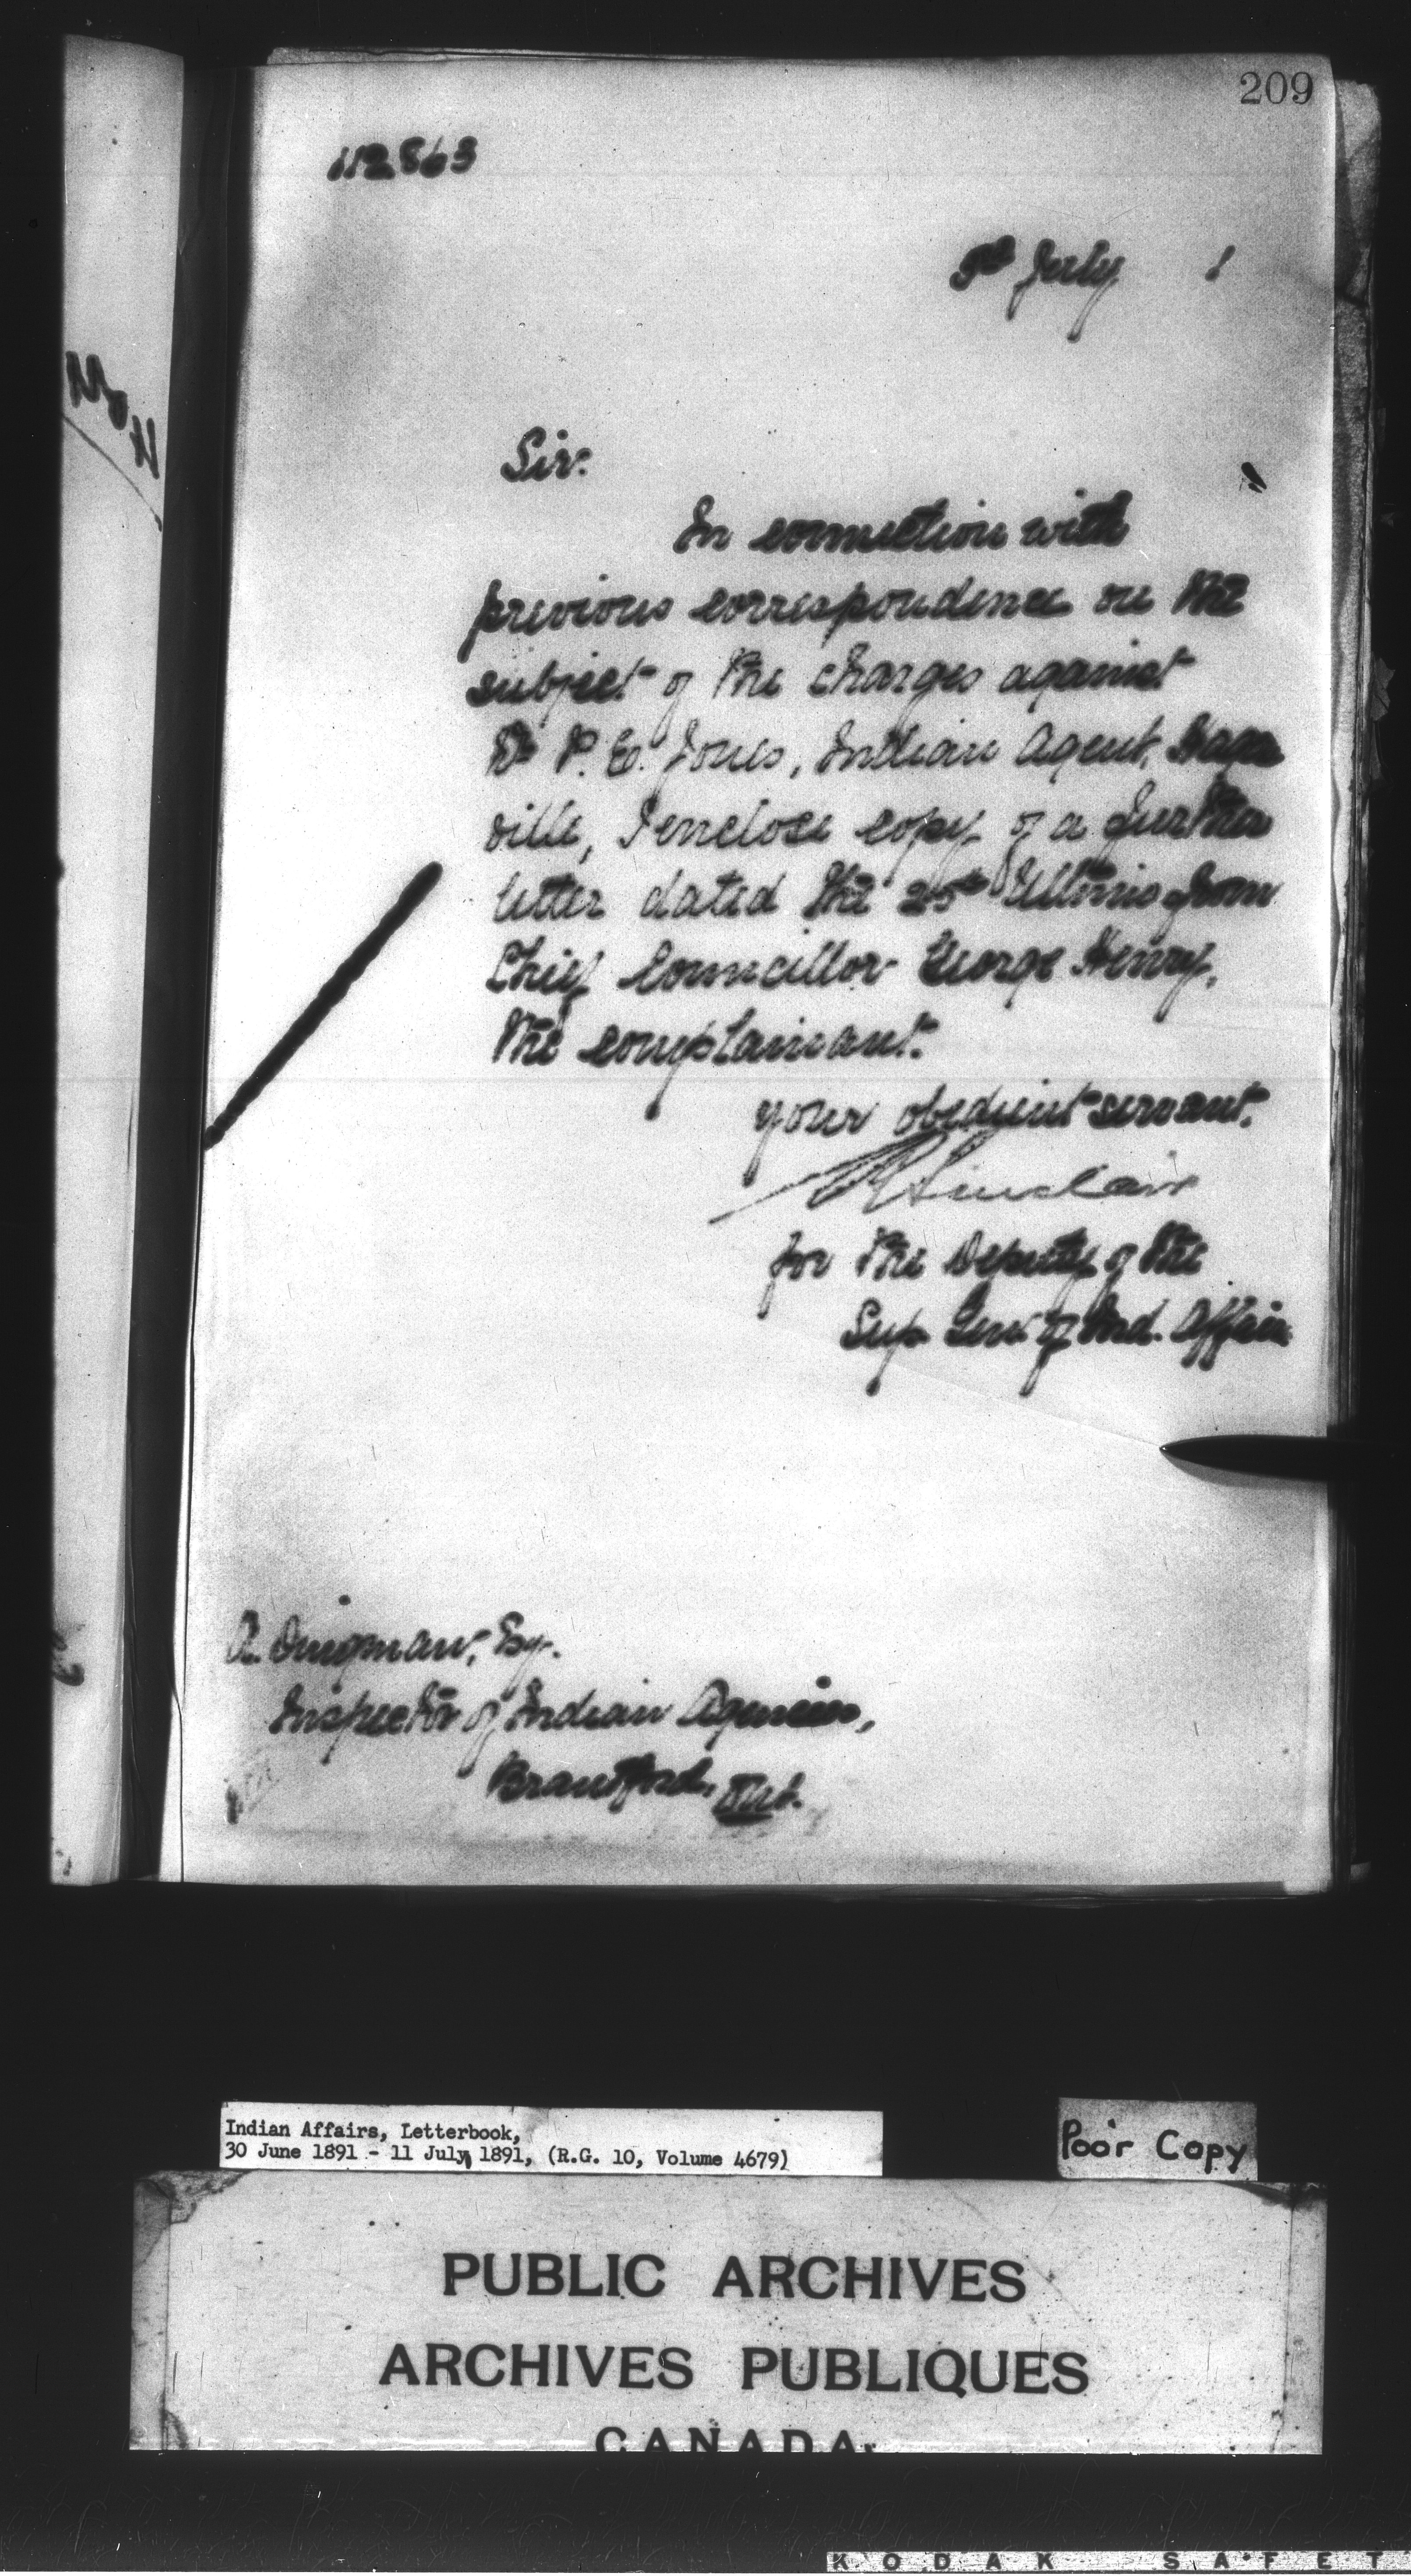 209
112863
July 1
Sir:
In connection with
previous correspondence on the
subject of the charges against
Dr P. E. Jones, Indian Agent, Hagers
ville, I enclose copy of a further
letter dated the 25th Ultimo from
Chief Councillor George Henry,
the complainant.
your obedient servant.
Sinclair
for the Deputy of the
Sup. Genl of Ind. Affairs
A. Dingman, Esq.
Inspector of Indian Agencies,
Brantford, Ont.
Indian Affairs, Letterbook,
30 June 1891 - 11 July 1891, (R.G. 10, Volume 4679)
Poor Copy
PUBLIC ARCHIVES
ARCHIVES PUBLIQUES
CANADA
KODAK SAFET